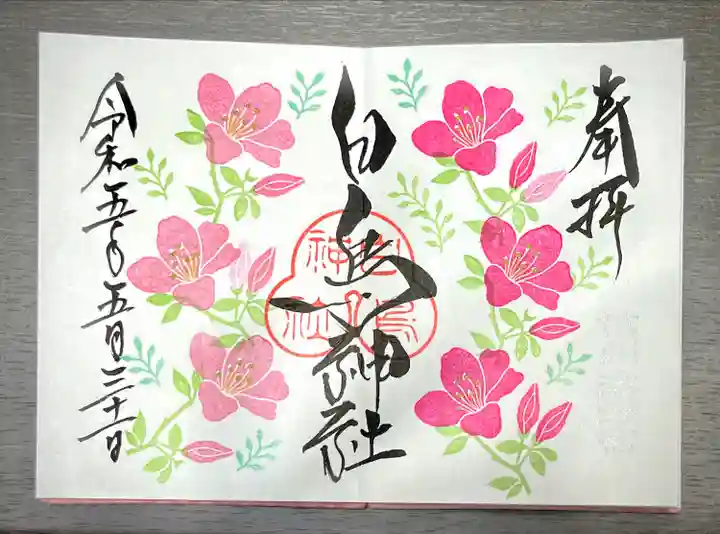 奉拝
白鳥神社
白鳥
神社
令和五年五月三十一日